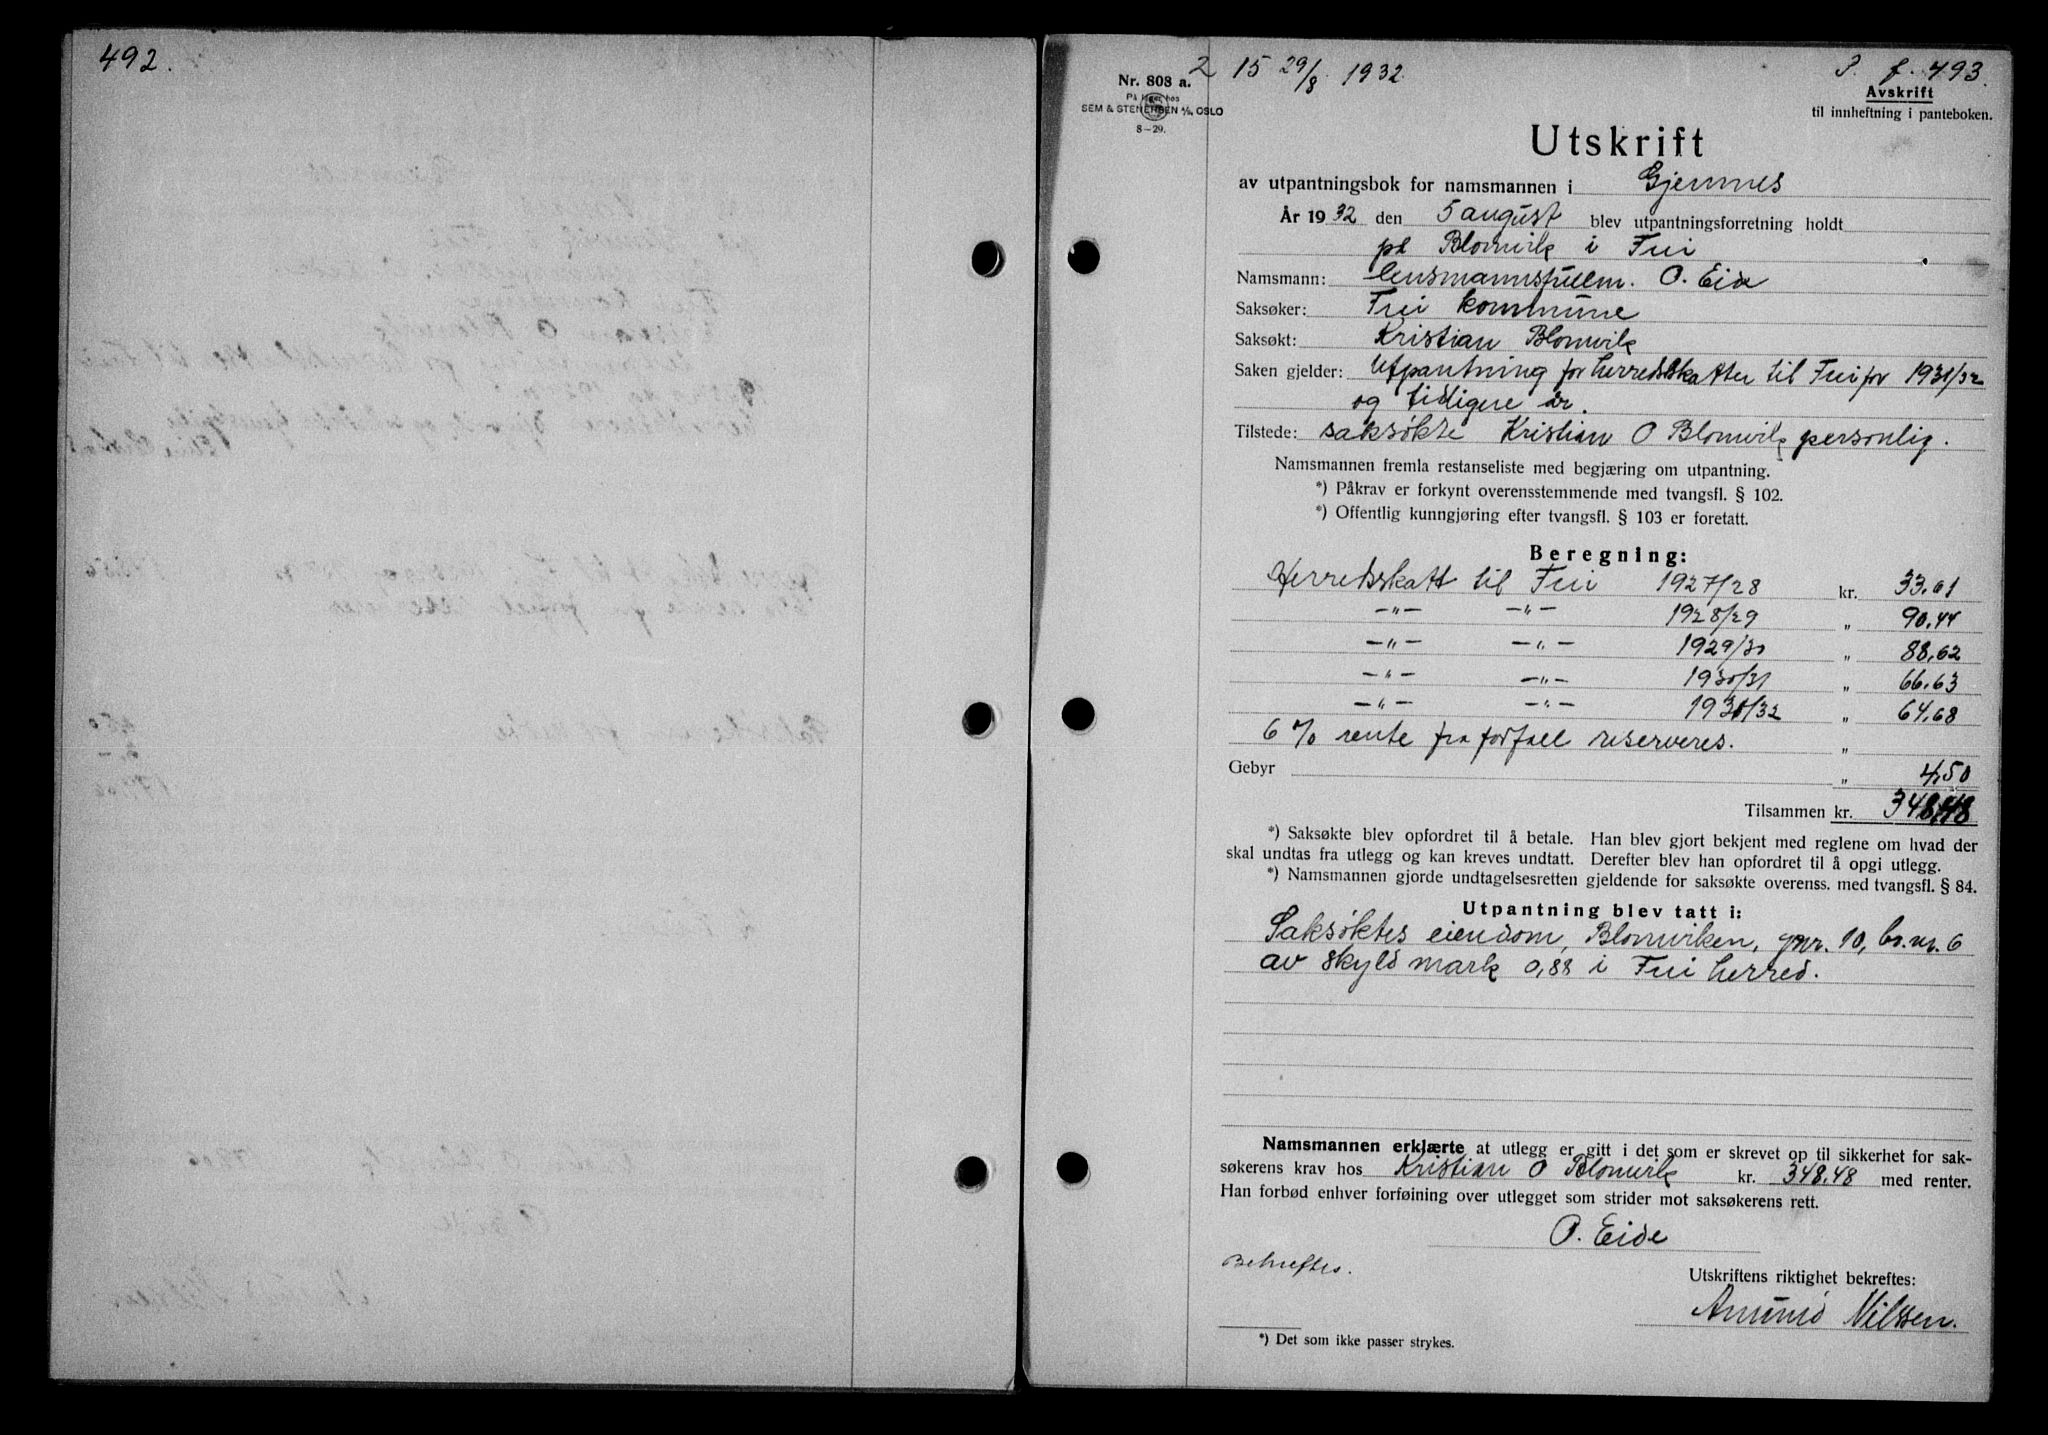 492.
2 15 29/8 1932
f. 493
Nr. 808 a.
På lager hos
SEM & STENERSEN A/S, OSLO
8—29.
Avskrift
til innheftning i panteboken.
Utskrift
av utpantningsbok for namsmannen i Gjemnes
År 1932 den 5 august blev utpantningsforretning holdt
på Blomvik i Frei
Namsmann: lensmannsfullm. O. Eide
Saksøker: Frei kommune
Saksøkt: Kristian Blomvik
Saken gjelder: Utpantning for herredsskatter til Frei for 1931/32
og tidligere år.
Tilstede: saksøkte Kristian O Blomvik personlig.
Namsmannen fremla restanseliste med begjæring om utpantning.
*) Påkrav er forkynt overensstemmende med tvangsfl. § 102.
*) Offentlig kunngjøring efter tvangsfl. § 103 er foretatt.
Beregning:
Herredsskatt til Frei 1927/28 kr. 33,61
—"— —"— 1928/29 „ 90,44
—"— —"— 1929/30 „ 88,62
—"— —"— 1930/31 „ 66,63
—"— —"— 1931/32 „ 64,68
6 % rente fra forfall reserveres. „
Gebyr „ 4,50
Tilsammen kr. 348,48
*) Saksøkte blev opfordret til å betale. Han blev gjort bekjent med reglene om hvad der
skal undtas fra utlegg og kan kreves undtatt. Derefter blev han opfordret til å opgi utlegg.
*) Namsmannen gjorde undtagelsesretten gjeldende for saksøkte overenss. med tvangsfl. § 84.
Utpantning blev tatt i:
Saksøktes eiendom, Blomviken, gnr. 10, br.nr. 6
av skyld mark 0,88 i Frei herred.
Namsmannen erklærte at utlegg er gitt i det som er skrevet op til sikkerhet for sak-
søkerens krav hos Kristian O Blomvik kr. 348,48 med renter.
Han forbød enhver forføining over utlegget som strider mot saksøkerens rett.
O. Eide
Bekreftes.
Utskriftens riktighet bekreftes:
Amund Nilssen.
*) Det som ikke passer strykes.